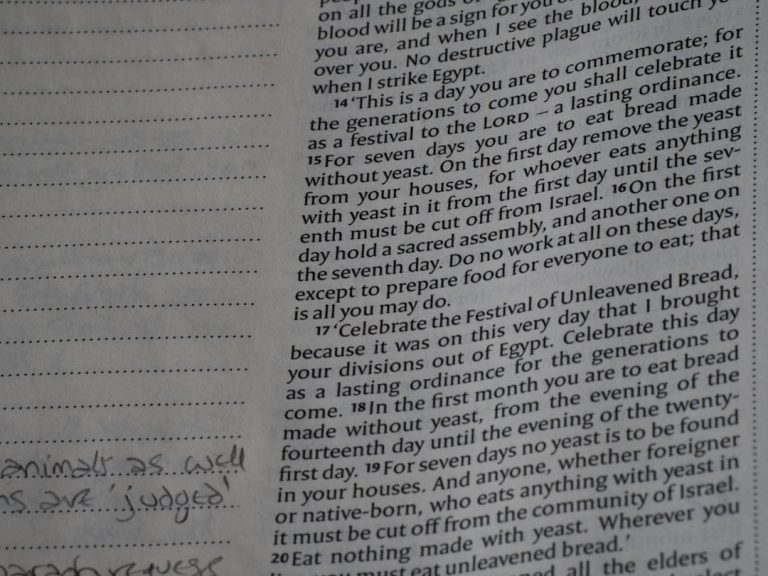 on all the gods of
blood will be a sign for you o
you are, and when I see the blood,
over you. No destructive plague will touch
when I strike Egypt.
14 ‘This is a day you are to commemorate; for
the generations to come you shall celebrate it
as a festival to the LORD – a lasting ordinance.
15 For seven days you are to eat bread made
without yeast. On the first day remove the yeast
from your houses, for whoever eats anything
with yeast in it from the first day until the sev-
enth must be cut off from Israel. 16 On the first
day hold a sacred assembly, and another one on
the seventh day. Do no work at all on these days,
except to prepare food for everyone to eat; that
is all you may do.
17 ‘Celebrate the Festival of Unleavened Bread,
because it was on this very day that I brought
your divisions out of Egypt. Celebrate this day
as a lasting ordinance for the generations to
come. 18 In the first month you are to eat bread
made without yeast, from the evening of the
fourteenth day until the evening of the twenty-
first day. 19 For seven days no yeast is to be found
in your houses. And anyone, whether foreigner
or native-born, who eats anything with yeast in
it must be cut off from the community of Israel.
20 Eat nothing made with yeast. Wherever you
must eat unleavened bread.’
all the elders of
animals as well
are ‘judged’